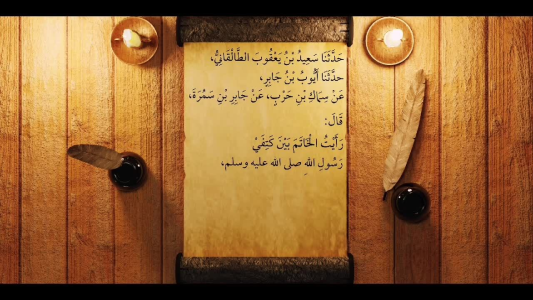 حَدَّثَنَا سَعِيدُ بْنُ يَعْقُوبَ الطَّالْقَانِيُّ،
حدَّثَنَا أَيُّوبُ بْنُ جَابِرٍ،
عَنْ سِمَاكِ بْنِ حَرْبٍ، عَنْ جَابِرِ بْنِ سَمُرَةَ،
قَالَ:
رَأَيْتُ الْخَاتَمَ بَيْنَ كَتِفَيْ
رَسُولِ اللهِ صلى الله عليه وسلم،